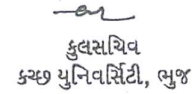 કુલસચિવ
કચ્છ યુનિવર્સિટી, ભુજ